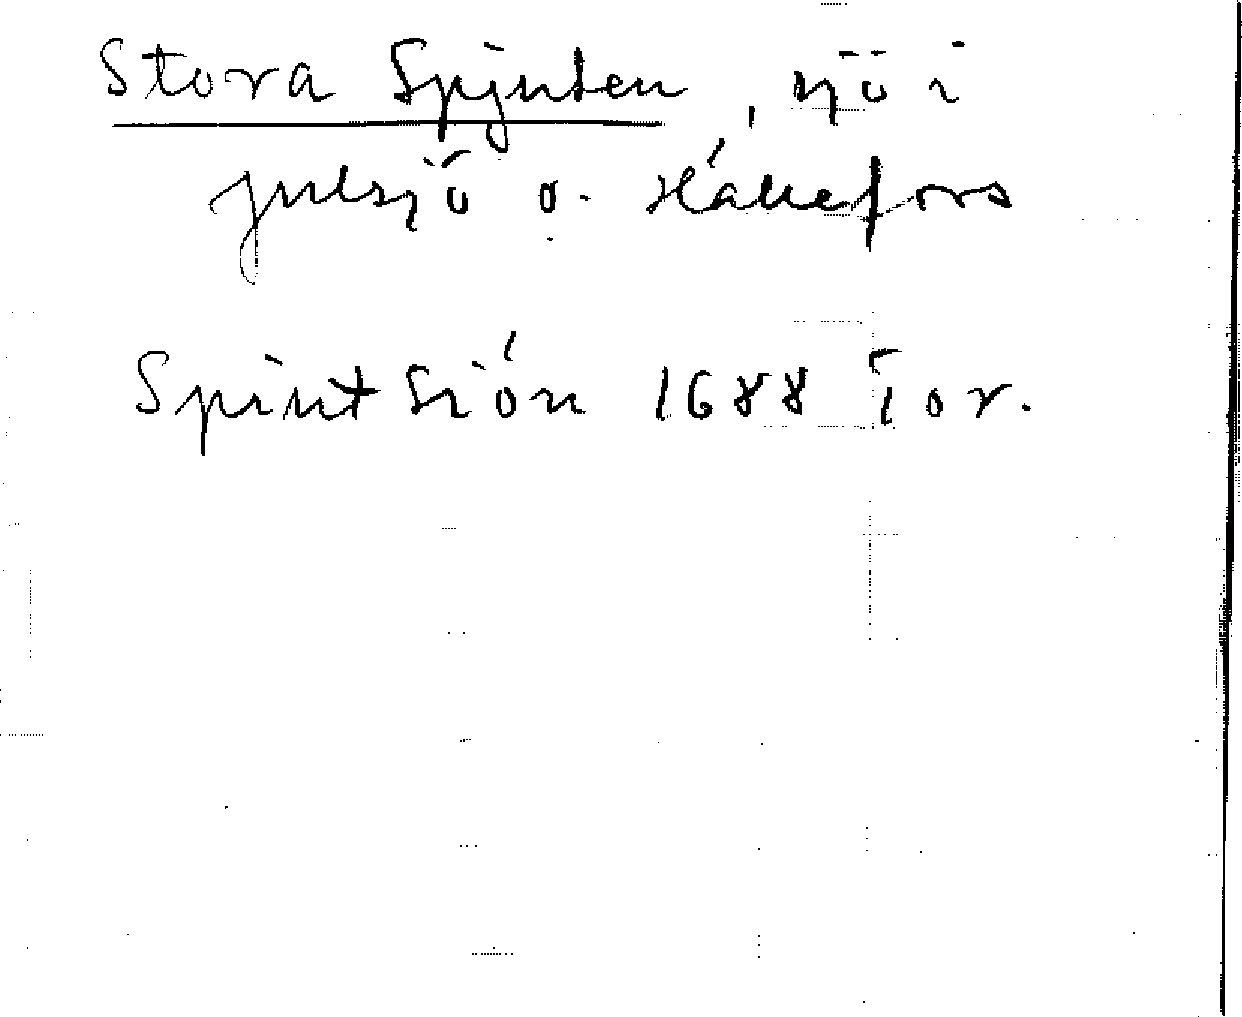 Stora Spjuten, sjö i
julsjö o. Hällefors
Spiut Siön 1688 i or.